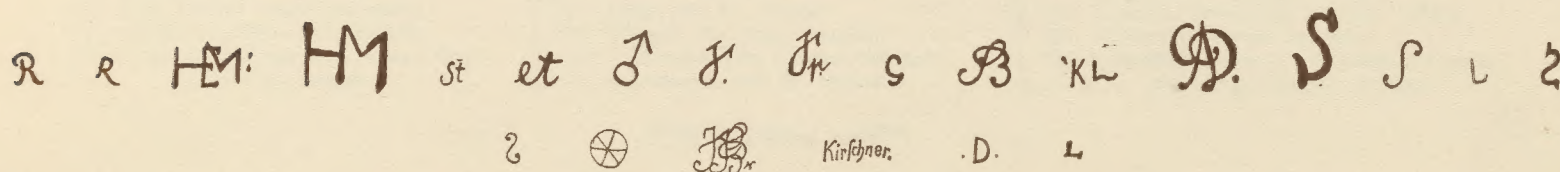 R R HEM: HM St et ♂ J. Jr S B KL AD. S S L 2
2 JB Kirſchner. .D. L